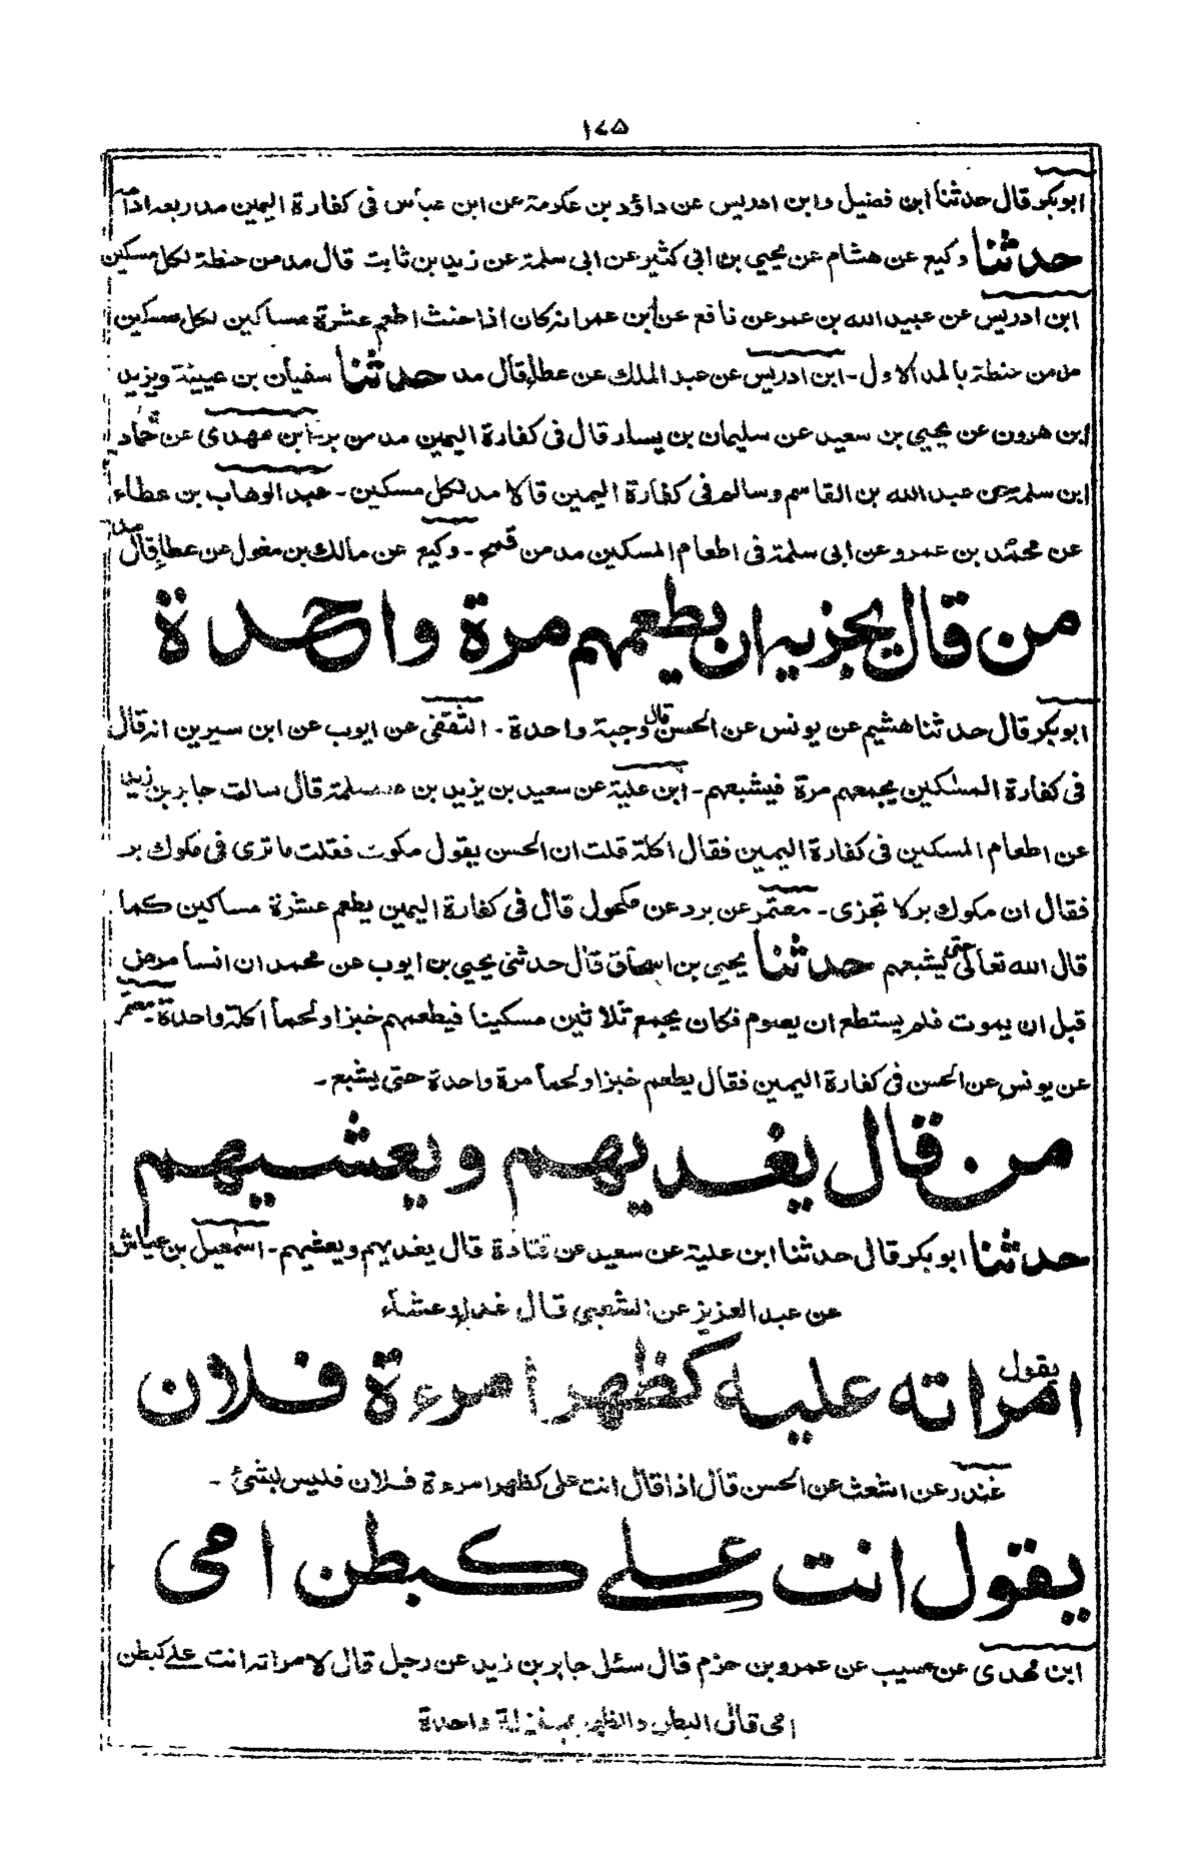 ١٤٥
ابوبكر قال حدثنا ابن فضيل وابن ادريس عن داؤد بن عكرمة عن ابن عباس فى كفارة اليمين مد ربعه ادامه
حدثنا وكيع عن هشام عن يحيي بن ابى كثير عن ابى سلمة عن زيد بن ثابت قال مد من حنطة لكل مسكين
ابن ادريس عن عبيد الله بن عمر عن نافع عن ابن عمر انه كان اذا حنث اطعم عشرة مساكين لكل مسكين
مد من حنطة بالمد الاول - ابن ادريس عن عبد الملك عن عطاء قال مد حدثنا سفيان بن عيينة ويزيد
ابن هرون عن يحيي بن سعيد عن سليمان بن يسار قال فى كفارة اليمين مد من بر - ابن مهدى عن حماد
ابن سلمة عن عبد الله بن القاسم وسالم فى كفارة اليمين قالا مد لكل مسكين - عبد الوهاب بن عطاء
عن محمد بن عمرو عن ابى سلمة فى اطعام المسكين مد من قمح - وكيع عن مالك بن مغول عن عطاء قال مد
من قال يجزيه ان يطعمهم مرة واحدة
ابوبكر قال حدثنا هشيم عن يونس عن الحسن قال وجبة واحدة - الثقفى عن ايوب عن ابن سيرين انه قال
فى كفارة المسكين يجمعهم مرة فيشبعهم - ابن علية عن سعيد بن يزيد بن مسلمة قال سالت جابر بن زيد
عن اطعام المسكين فى كفارة اليمين فقال اكلة قلت ان الحسن يقول مكوك فقلت ما ترى فى مكوك بر
فقال ان مكوك بر لا تجزى - معتمر عن برد عن مكحول قال فى كفارة اليمين يطعم عشرة مساكين كما
قال الله تعالى حتى يشبعهم حدثنا يحيي بن اسحاق قال حدثنى يحيي بن ايوب عن محمد ان انسا مرض
قبل ان يموت فلم يستطع ان يصوم فكان يجمع ثلاثين مسكينا فيطعمهم خبزا ولحما اكلة واحدة - معتمر
عن يونس عن الحسن فى كفارة اليمين فقال يطعم خبزا ولحما مرة واحدة حتى يشبع -
من قال يغديهم ويعشيهم
حدثنا ابوبكر قال حدثنا ابن علية عن سعيد عن قتادة قال يغديهم ويعشيهم - اسمعيل بن عياش
عن عبد العزيز عن الشعبى قال غداء وعشاء
يقول امراته عليه كظهر امرءة فلان
غندر عن اشعث عن الحسن قال اذا قال انت على كظهر امرءة فلان فليس بشئ -
يقول انت على كبطن امى
ابن مهدى عن مسيب عن عمرو بن حزم قال سئل جابر بن زيد عن رجل قال لامراته انت على كبطن
امى قال البطن والظهر بمنزلة واحدة